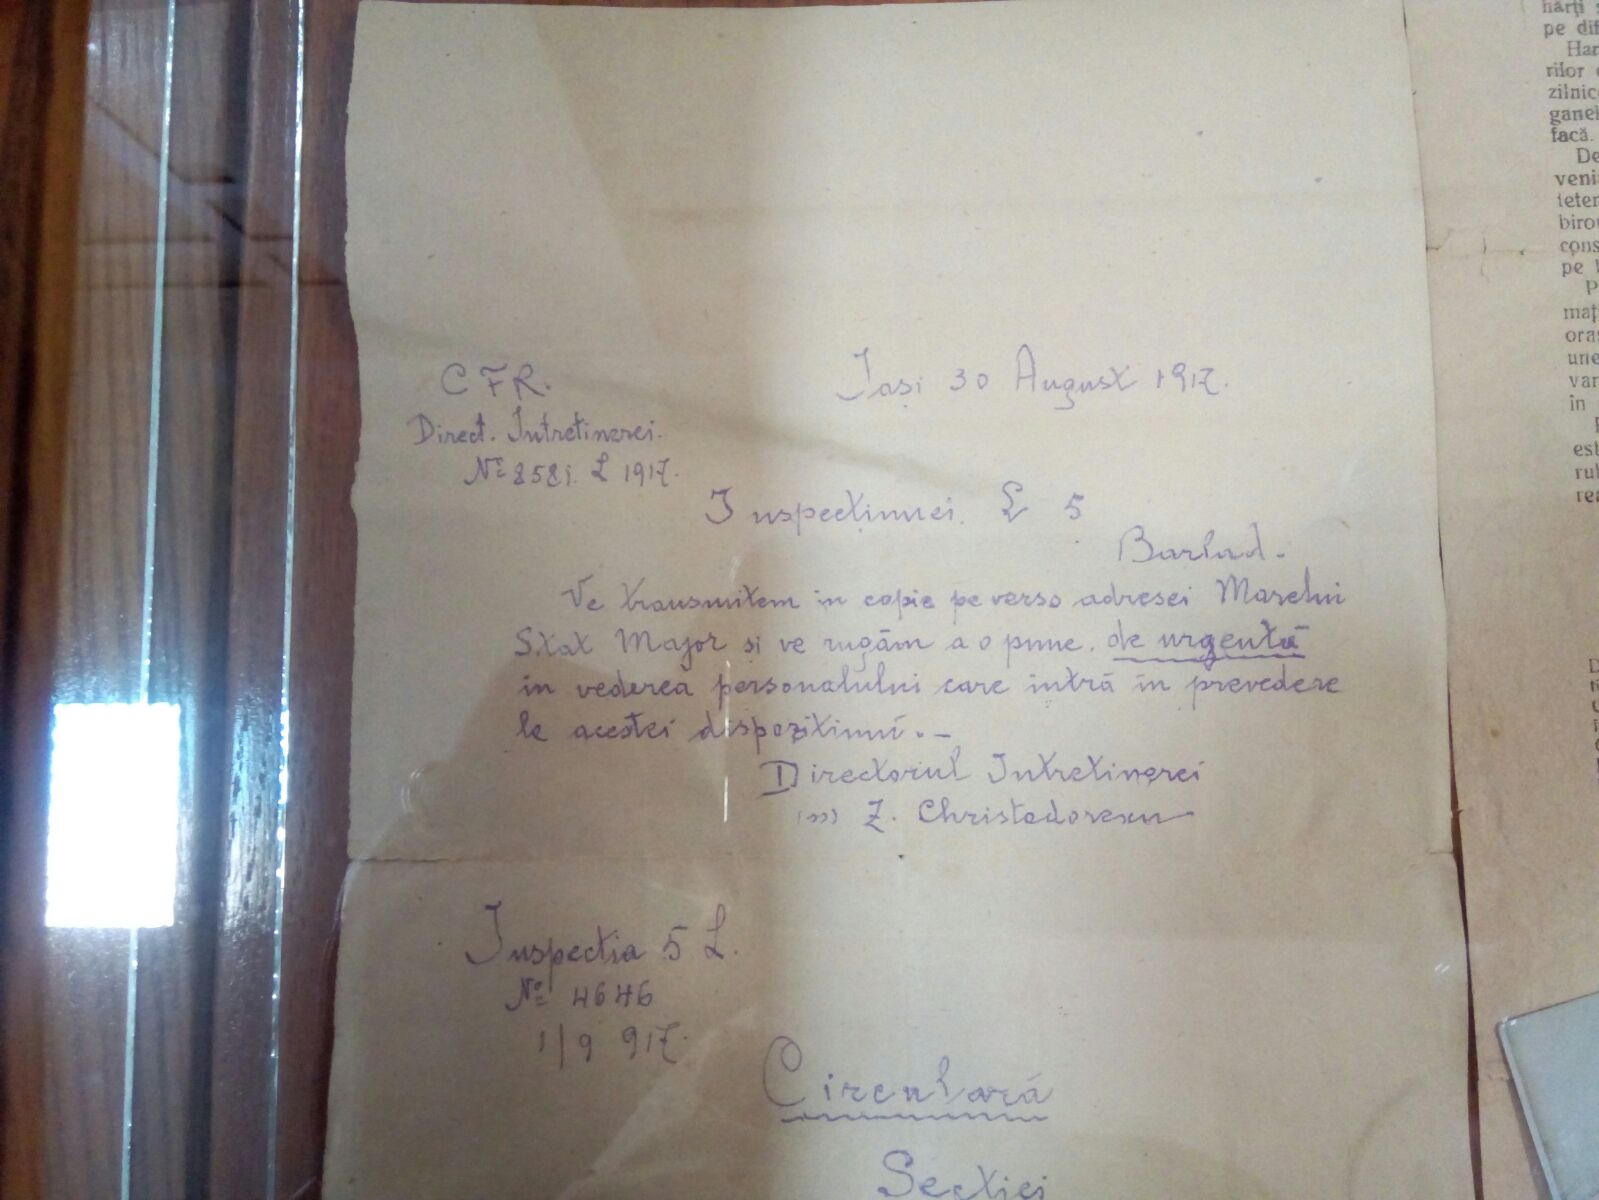 C F R.
Iași 30 August 1917.
Direct. Intretinerei.
Nº 8581. L 1917.
Inspecținnei. L 5
Barlad.
Ve transmitem in copie pe verso adresei Marelui
Stat Major si ve rugăm a o pune. de urgentă
in vederea personalului care intră in prevedere
le acestei dispozitiuni. -
Directorul Intretinerei
Z. Christodorescu
Inspectia 5 L.
Nº 4646
1/9 917.
Circulară
Secției
hărți
pe dif
Har
rilor
zilnic
ganel
facă.
De
veni
teter
birou
cons
pe
P
maț
oraș
une
var
in
est
rul
rea